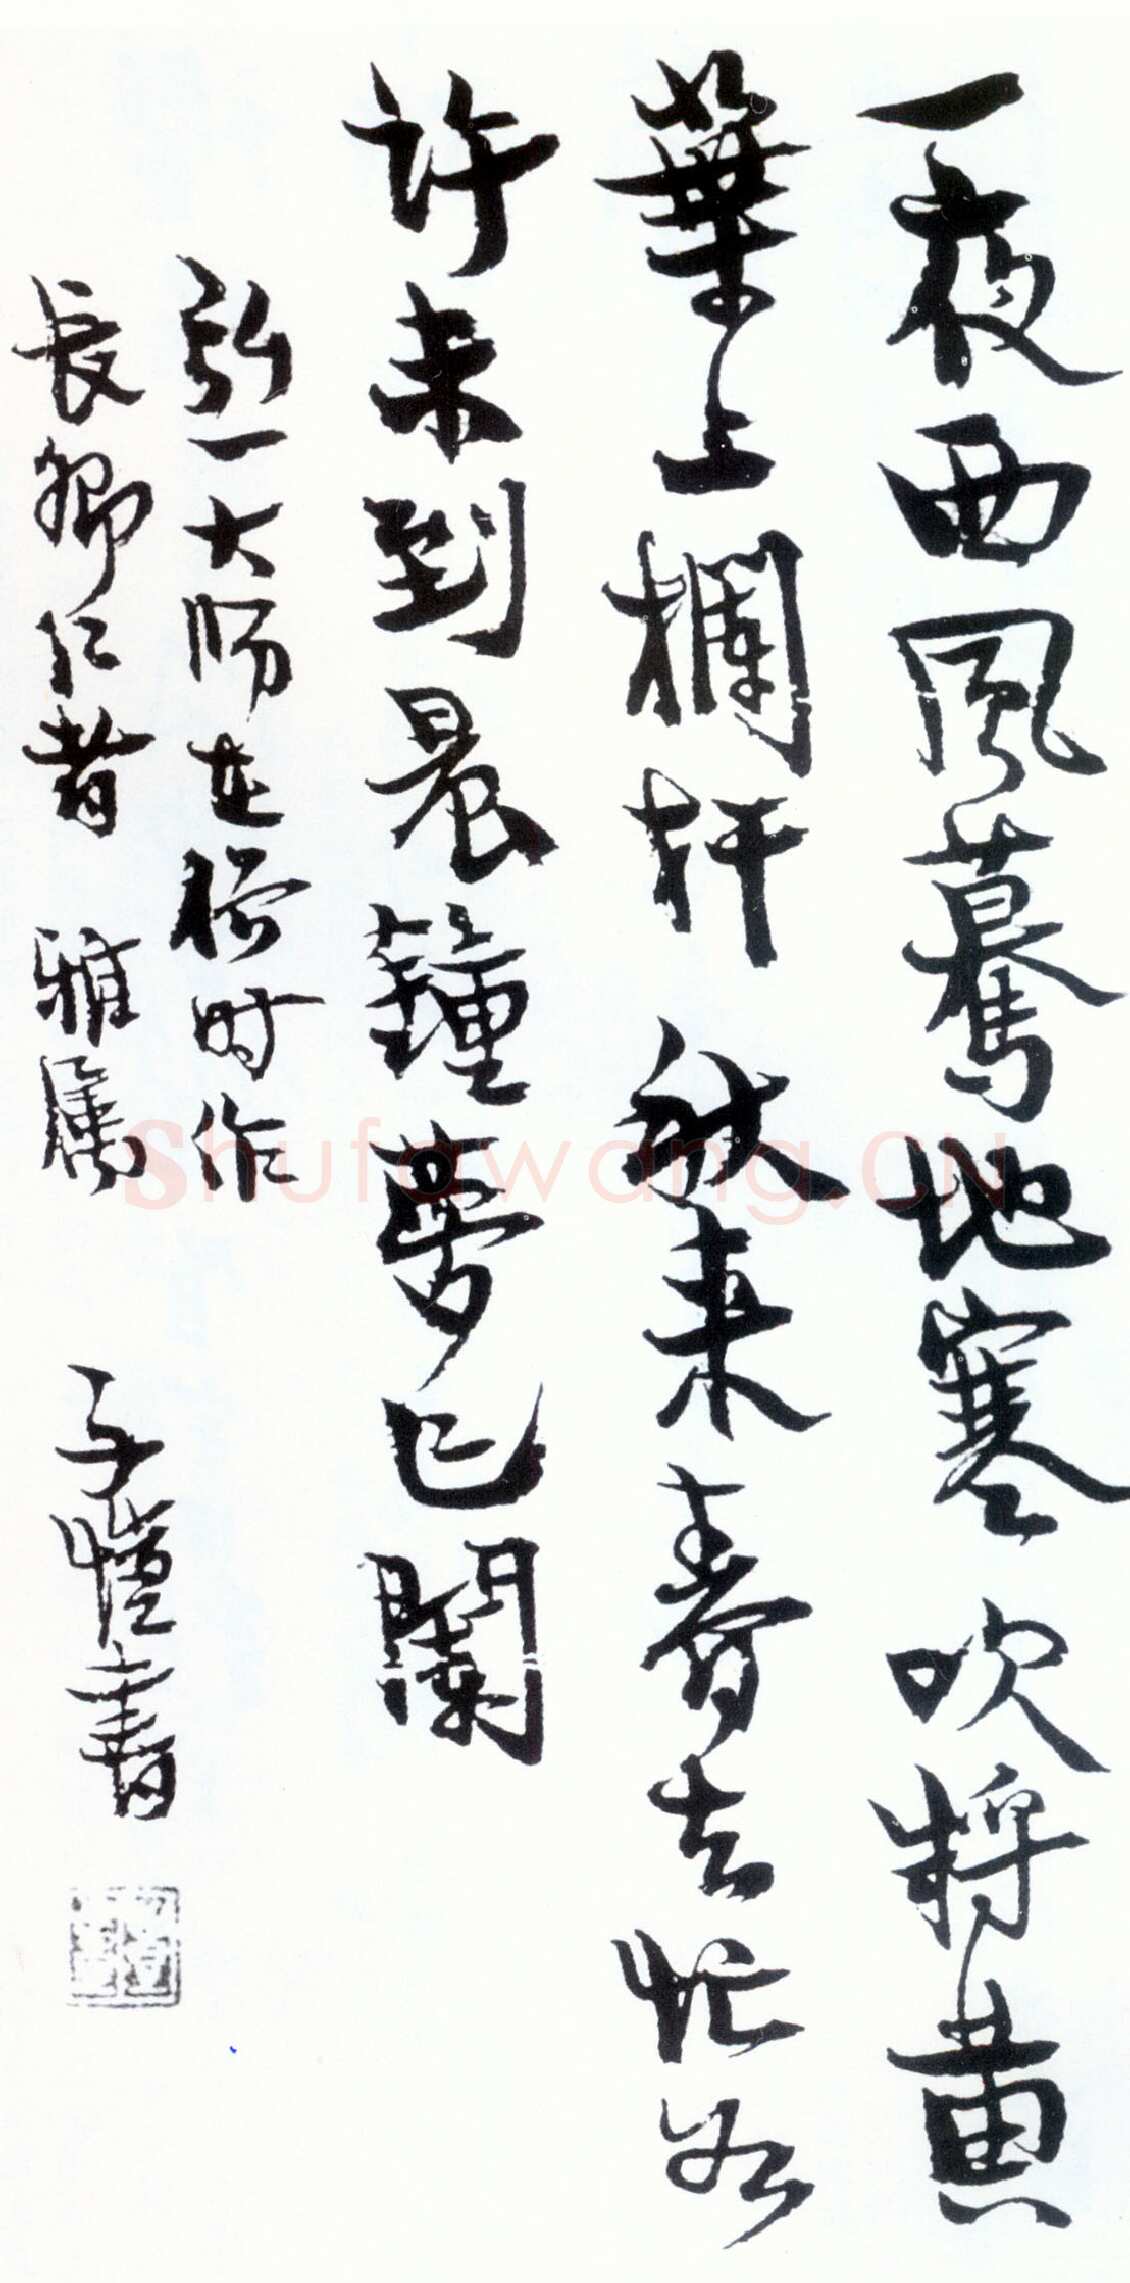 一夜西風驀地寒 吹將黄
葉上欄杆 秋来春去忙如
許未到晨鐘夢已闌
弘一大师在俗时作
長卿仁者 雅属 子愷書
Shufawang.CN